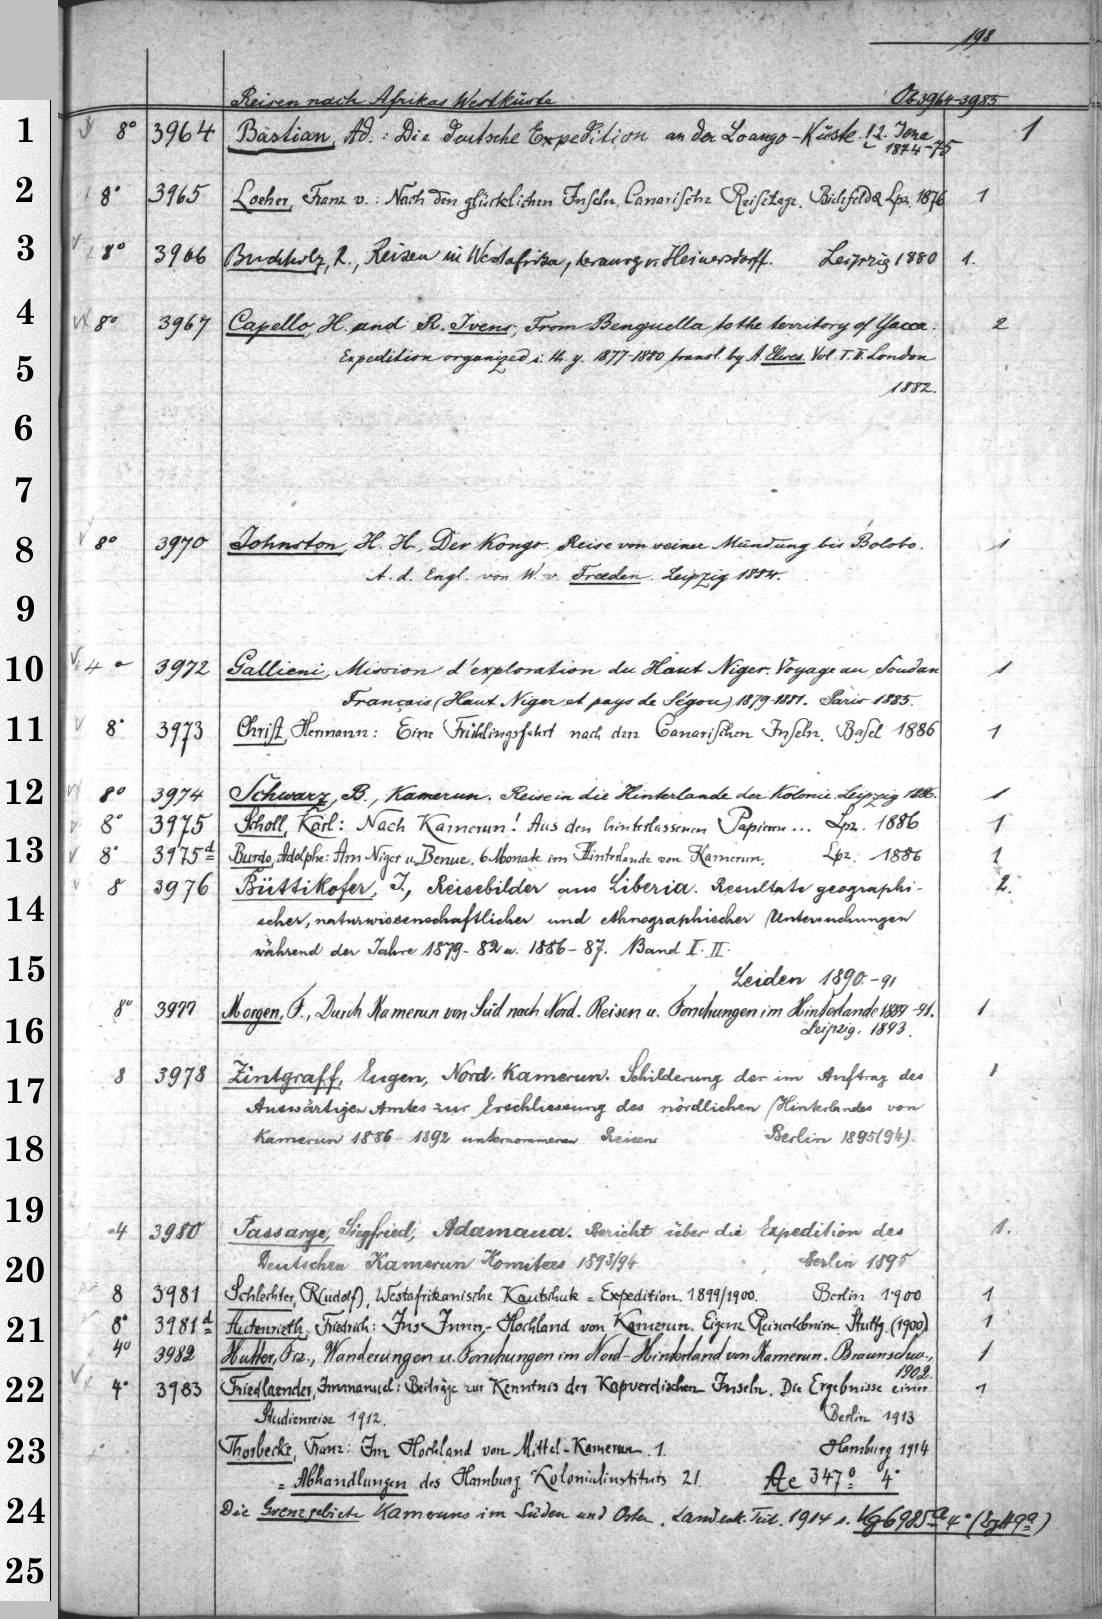 198
Reisen nach Afrikas Westküste Ob 3964-3985
1 8° 3964 Bastian, Ad.: Die deutsche Expedition an der Loango-Küste. 1 2. Jena 1
1874-75
2 8° 3965 Loeher, Franz v.: Nach den glücklichen Inseln. Canarische Reisetage. Bielefeld & Lpz. 1876 1
3 8° 3966 Buchholz, R., Reisen in Westafrika, herausg v. Heinersdorff. Leipzig 1880 1.
4 8° 3967 Capello, H. and R. Ivens, From Benguella to the territory of Yacca. 2
5 Expedition organized i. th. y. 1877-1880 transl. by A. Elwes. Vol. I. II. London
1882.
6
7
8 8° 3970 Johnston, H. H., Der Kongo. Reise von seiner Mündung bis Bolobo. 1
A. d. Engl. von W. v. Freeden. Leipzig 1884.
9
10 4° 3972 Gallieni, Mission d'exploration du Haut Niger. Voyage au Soudan 1
Français (Haut Niger et pays de Ségou) 1879-1881. Paris 1885.
11 8° 3973 Christ, Hermann: Eine Frühlingsfahrt nach den Canarischen Inseln. Basel 1886 1
12 8° 3974 Schwarz, B., Kamerun. Reise in die Hinterlande der Kolonie. Leipzig 1886. 1
8° 3975 Scholl, Karl: Nach Kamerun! Aus den hinterlassenen Papieren... Lpz. 1886 1
13 8° 3975d Burdo, Adolphe: Am Niger u. Benue. 6 Monate im Hinterlande von Kamerun. Lpz. 1886 1
8 3976 Büttikofer, J., Reisebilder aus Liberia. Resultate geographi- 2.
14 scher, naturwissenschaftlicher und ethnographischer Untersuchungen
während der Jahre 1879-82 u. 1886-87. Band I. II.
15 Leiden 1890.-91
8° 3977 Morgen, F., Durch Kamerun von Süd nach Nord. Reisen u. Forschungen im Hinterlande 1889-91. 1
16 Leipzig. 1893.
8 3978 Zintgraff, Eugen, Nord-Kamerun. Schilderung der im Auftrag des 1
17 Auswärtigen Amtes zur Erschliessung des nördlichen Hinterlandes von
18 Kamerun 1886-1892 unternommenen Reisen Berlin 1895(94).
19
4 3980 Passarge, Siegfried, Adamaua. Bericht über die Expedition des 1.
20 Deutschen Kamerun Komitees 1893/94 Berlin 1895
8 3981 Schlechter, R(udolf), Westafrikanische Kautschuk-Expedition. 1899/1900. Berlin 1900 1
21 8° 3981d Autenrieth, Friedrich: Ins Inner-Hochland von Kamerun. Eigene Reiseerlebnisse. Stuttg. (1900) 1
4° 3982 Hutter, Frz., Wanderungen u. Forschungen im Nord-Hinterland von Kamerun. Braunschw., 1
1902.
22 4° 3983 Friedlaender, Immanuel: Beiträge zur Kenntnis der Kapverdischen Inseln. Die Ergebnisse einer 1
Studienreise 1912. Berlin 1913
23 Thorbecke, Franz: Im Hochland von Mittel-Kamerun. 1. Hamburg 1914
= Abhandlungen des Hamburg. Kolonialinstituts 21. Ac 347° 4°
24 Die Grenzgebiete Kameruns im Süden und Osten. Landesk. Teil. 1914 s. Kg 6985a 4° (Erg H 9a)
25